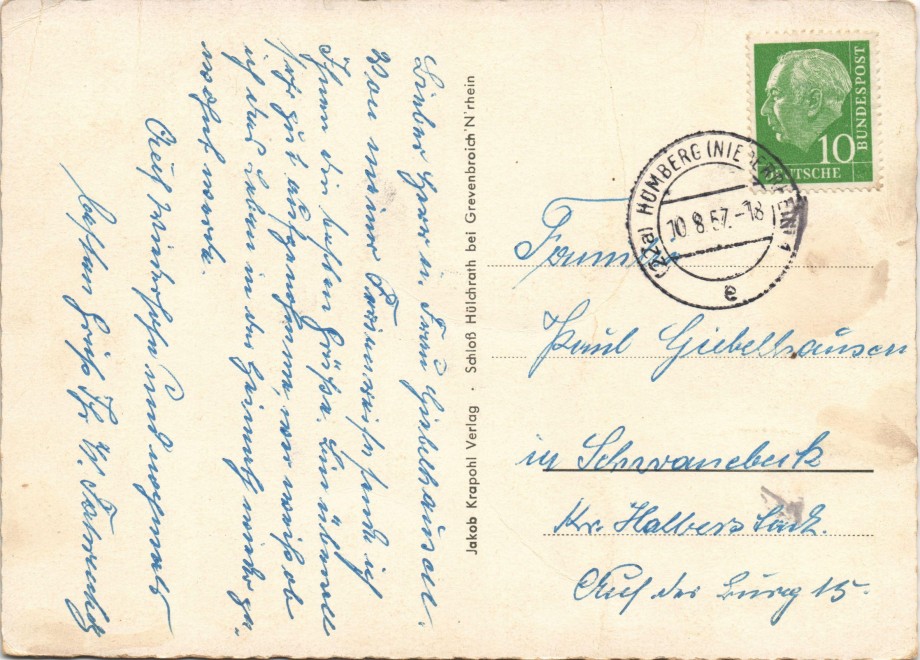 Lieber Herr u. Frau Giebelhausen.
Von meiner Ferienreise sende ich
Ihnen die besten Grüße. Bin überall
sehr gut aufgenommen, wer weiß ob
ich das Leben in der Heimat wieder ge-
wohnt werde.
Auf Wiedersehn und nochmals
besten Gruß Ihr W.
Jakob Krapohl Verlag · Schloß Hülchrath bei Grevenbroich'N'rhein
10
DEUTSCHE
BUNDESPOST
(22a) HOMBERG (NIEDERRHEIN) 1
10.8.57.-18
e
Famil
Paul Giebelhausen
in Schwanebeck
Kr. Halberstadt.
Auf der Burg 15.